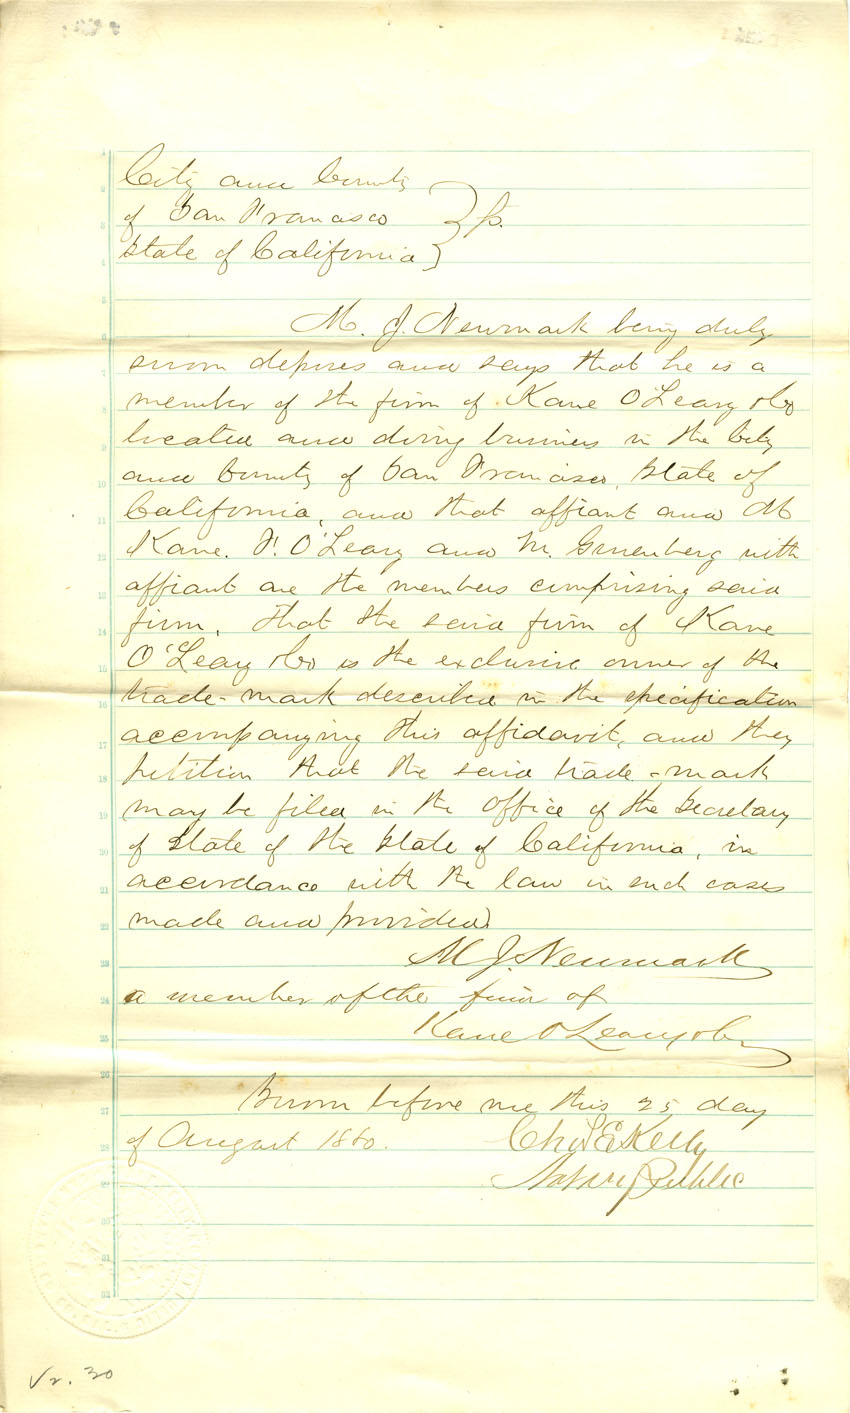 City and County
of San Francisco } ss.
State of California }
M. J. Newmark being duly
sworn deposes and says that he is a
member of the firm of Kane O'Leary & Co
located and doing business in the City
and County of San Francisco, State of
California, and that affiant and M
Kane. F. O'Leary and M. Gruenberg with
affiant are the members comprising said
firm. That the said firm of Kane
O'Leary & Co is the exclusive owner of the
trade-mark described in the specification
accompanying this affidavit, and they
petition that the said trade-mark
may be filed in the Office of the Secretary
of State of the State of California, in
accordance with the law in such cases
made and provided
M J. Newmark
a member of the firm of
Kane O'Leary & Co
Sworn before me this 25 day
of August 1880.
Chas E Kelly
Notary Public
30